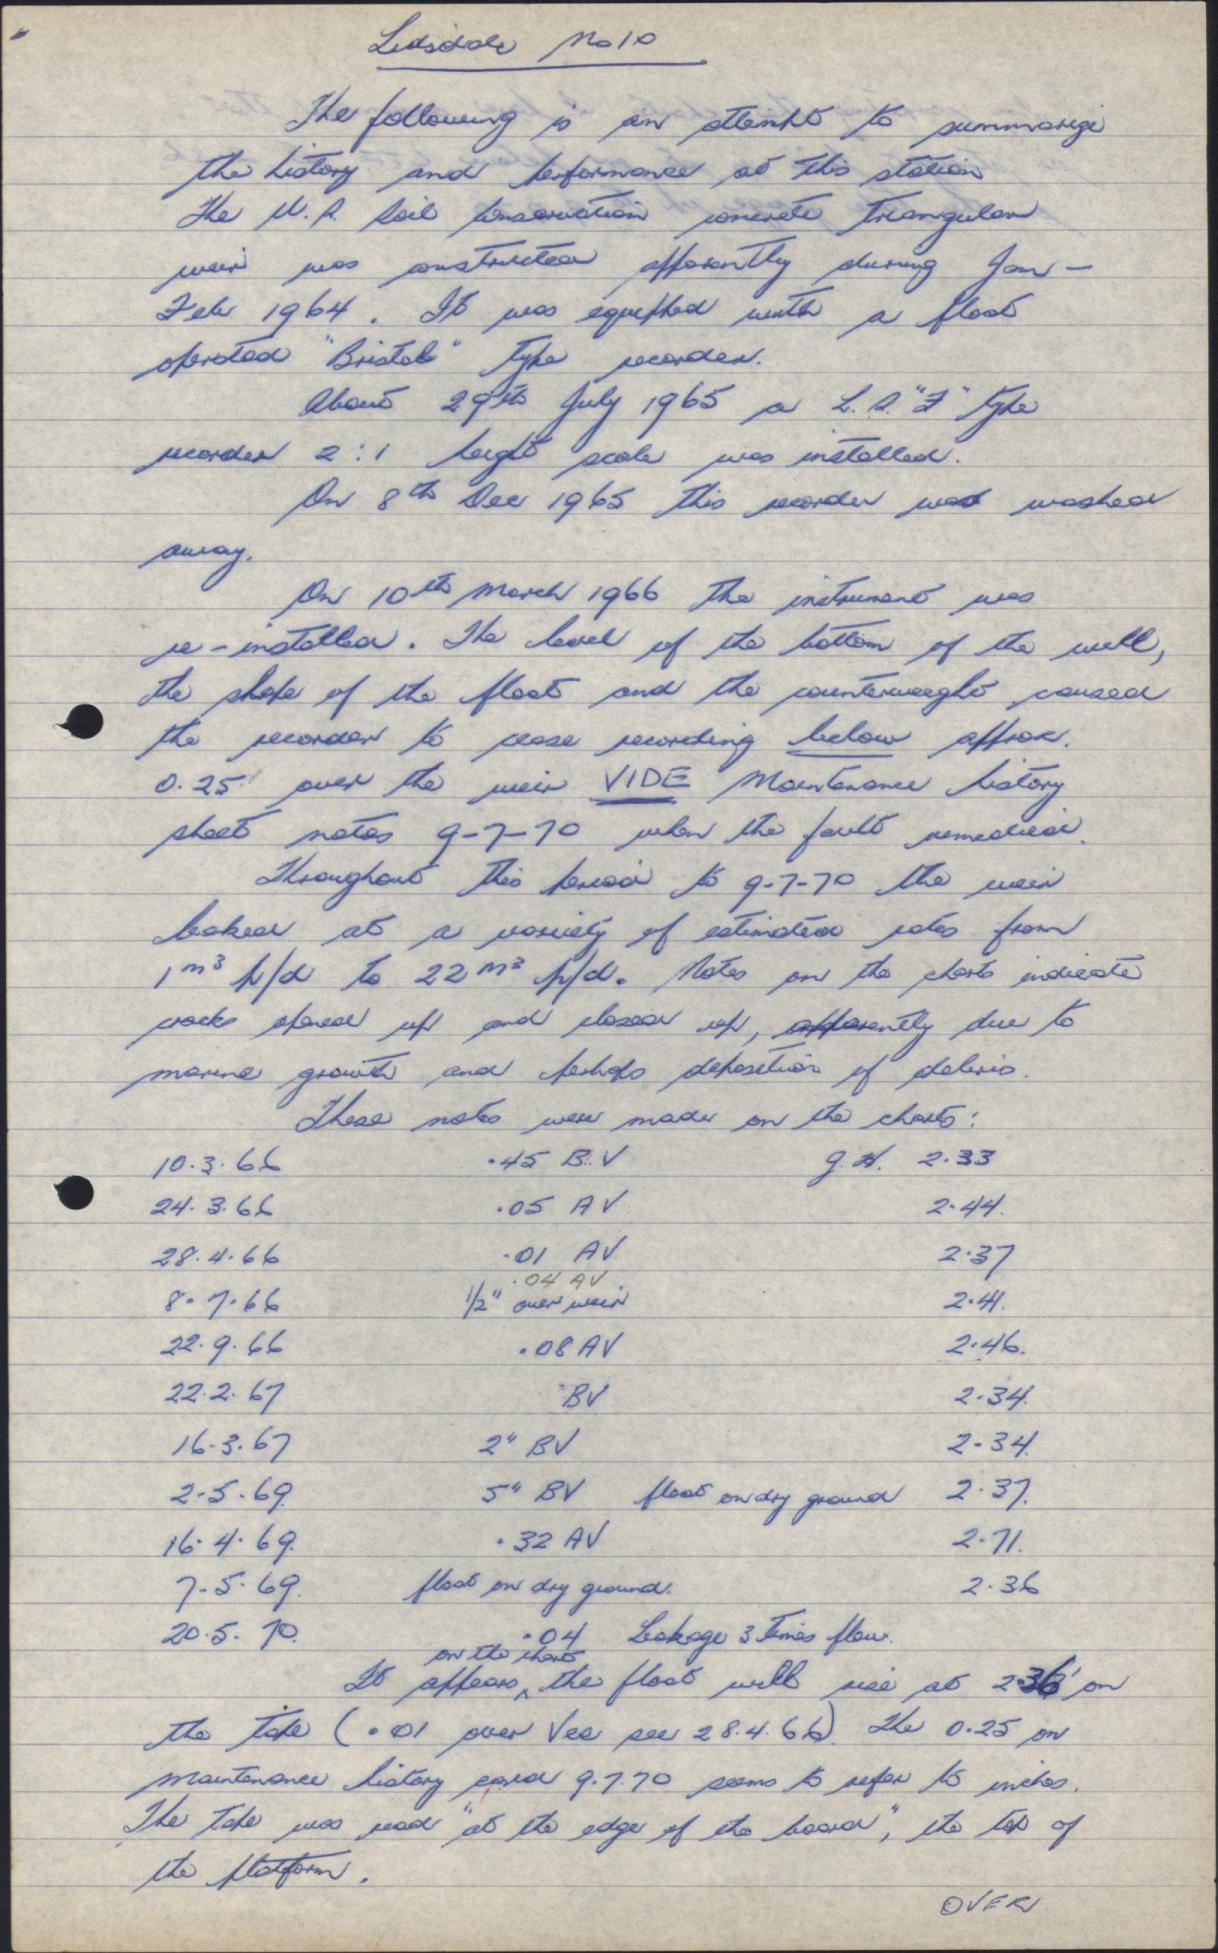 Lidsdale No 10
The following is an attempt to summarize
the history and performance at this station
The N.S. Soil Conservation concrete triangular
weir was constructed apparently during Jan -
Feb 1964. It was equipped with a float
operated "Bristol" type recorder.
About 29th July 1965 a L.S. "F" type
recorder 2:1 height scale was installed.
On 8th Dec 1965 this recorder was washed
away.
On 10th March 1966 the instrument was
re-installed. The level of the bottom of the well,
the shape of the float and the counterweight caused
the recorder to cease recording below approx.
0.25' over the weir VIDE Maintenance history
sheet notes 9-7-70 when the fault remedied.
Throughout this period to 9-7-70 the weir
leaked at a variety of estimated rates from
1 m³ p/d to 22 m³ p/d. Notes on the charts indicate
cracks opened up and closed up, apparently due to
marine growth and perhaps deposition of debris.
These notes were made on the charts:
10.3.66 .45 B.V g.H. 2.33
24.3.66 .05 AV 2.44.
28.4.66 .01 AV 2.37
.04 AV
8.7.66 1/2" over weir 2.41.
22.9.66 .08 AV 2.46.
22.2.67 BV 2.34.
16.3.67 2" BV 2.34.
2.5.69. 5" BV float on dry ground 2.37.
16.4.69. .32 AV 2.71.
7.5.69. float on dry ground. 2.36
20.5.70. .04 Leakage 3 times flow.
on the chart
It appears ^ the float will rise at 2.36' on
the tape (.01 over Vee see 28.4.66). The 0.25 on
maintenance history card 9.7.70 seems to refer to inches.
The tape was read "at the edge of the board", the top of
the platform.
OVER